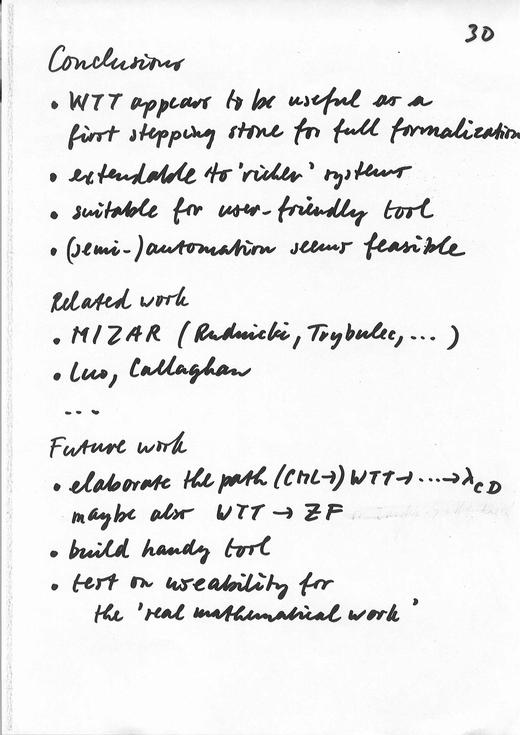 30
Conclusions
• WTT appears to be useful as a
first stepping stone for full formalization
• extendable to 'richer' systems
• suitable for user-friendly tool
• (semi-)automation seems feasible
Related work
• MIZAR (Rudnicki, Trybulec, ... )
• Luo, Callaghan
...
Future work
• elaborate the path (CML→) WTT→ ... →λCD
maybe also WTT → ZF
• build handy tool
• test on useability for
the 'real mathematical work'